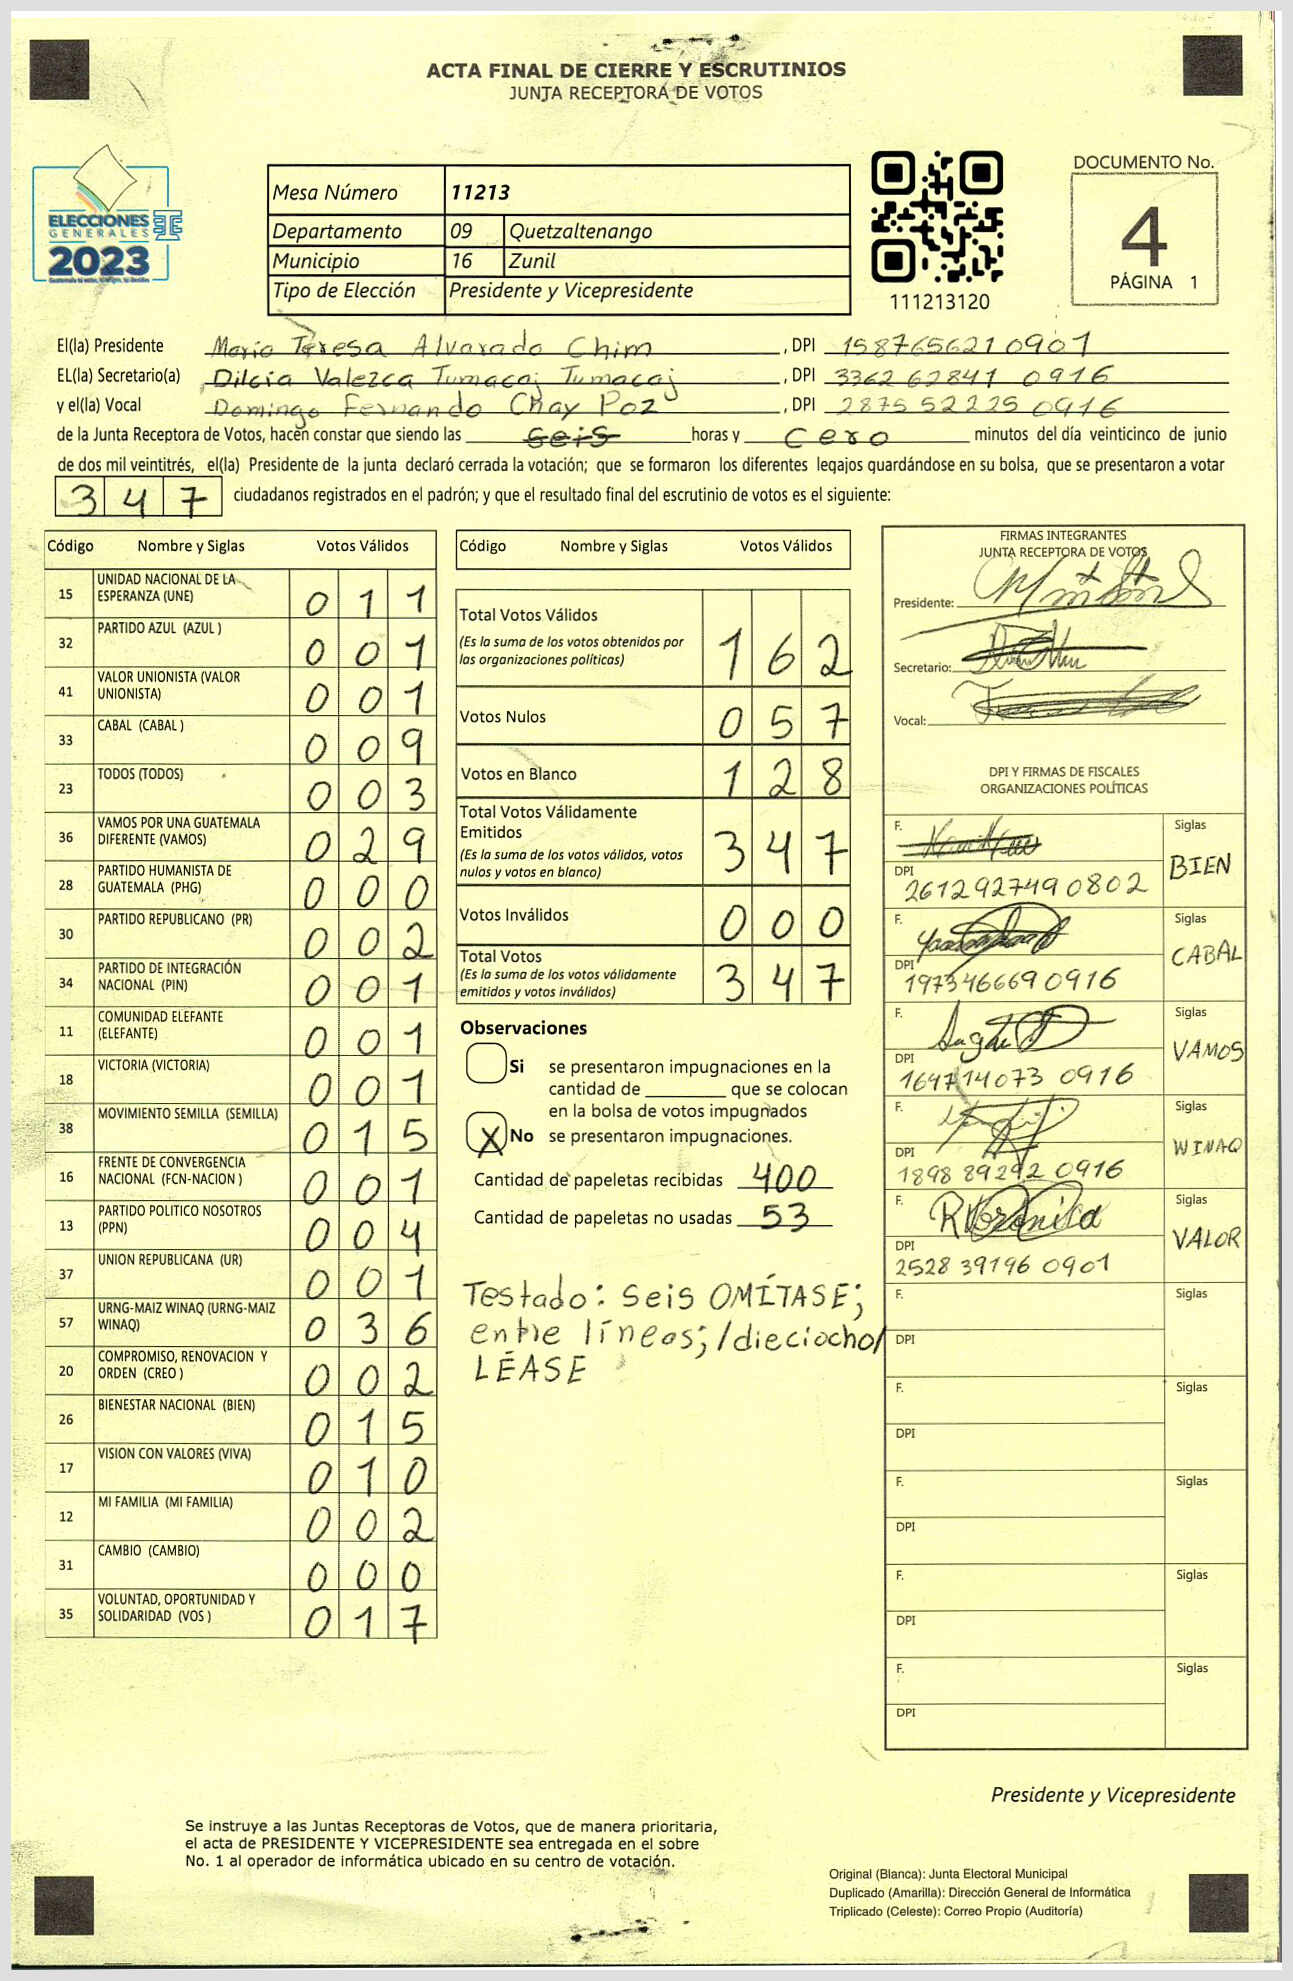 ACTA FINAL DE CIERRE Y ESCRUTINIOS
JUNTA RECEPTORA DE VOTOS
ELECCIONES
GENERALES
2023
Mesa Número 11213
Departamento 09 Quetzaltenango
Municipio 16 Zunil
Tipo de Elección Presidente y Vicepresidente
111213120
DOCUMENTO No.
4
PÁGINA 1
El(la) Presidente María Teresa Alvarado Chim, DPI 158765621 0901
EL(la) Secretario(a) Dilcia Valezca Tumacaj Tumacaj, DPI 3362 62841 0916
y el(la) Vocal Domingo Fernando Chay Poz, DPI 2875 52225 0916
de la Junta Receptora de Votos, hacen constar que siendo las seis horas y cero minutos del día veinticinco de junio
de dos mil veintitrés, el(la) Presidente de la junta declaró cerrada la votación; que se formaron los diferentes legajos guardándose en su bolsa, que se presentaron a votar
347 ciudadanos registrados en el padrón; y que el resultado final del escrutinio de votos es el siguiente:
Código Nombre y Siglas Votos Válidos
15 UNIDAD NACIONAL DE LA ESPERANZA (UNE) 011
32 PARTIDO AZUL (AZUL ) 001
41 VALOR UNIONISTA (VALOR UNIONISTA) 001
33 CABAL (CABAL ) 009
23 TODOS (TODOS) 003
36 VAMOS POR UNA GUATEMALA DIFERENTE (VAMOS) 029
28 PARTIDO HUMANISTA DE GUATEMALA (PHG) 000
30 PARTIDO REPUBLICANO (PR) 002
34 PARTIDO DE INTEGRACIÓN NACIONAL (PIN) 001
11 COMUNIDAD ELEFANTE (ELEFANTE) 001
18 VICTORIA (VICTORIA) 001
38 MOVIMIENTO SEMILLA (SEMILLA) 015
16 FRENTE DE CONVERGENCIA NACIONAL (FCN-NACION ) 001
13 PARTIDO POLITICO NOSOTROS (PPN) 004
37 UNION REPUBLICANA (UR) 001
57 URNG-MAIZ WINAQ (URNG-MAIZ WINAQ) 036
20 COMPROMISO, RENOVACION Y ORDEN (CREO ) 002
26 BIENESTAR NACIONAL (BIEN) 015
17 VISION CON VALORES (VIVA) 010
12 MI FAMILIA (MI FAMILIA) 002
31 CAMBIO (CAMBIO) 000
35 VOLUNTAD, OPORTUNIDAD Y SOLIDARIDAD (VOS ) 017
Código Nombre y Siglas Votos Válidos
Total Votos Válidos 162
(Es la suma de los votos obtenidos por
las organizaciones políticas)
Votos Nulos 057
Votos en Blanco 128
Total Votos Válidamente
Emitidos 347
(Es la suma de los votos válidos, votos
nulos y votos en blanco)
Votos Inválidos 000
Total Votos 347
(Es la suma de los votos válidamente
emitidos y votos inválidos)
Observaciones
Si se presentaron impugnaciones en la
cantidad de ________ que se colocan
en la bolsa de votos impugnados
X No se presentaron impugnaciones.
Cantidad de papeletas recibidas 400
Cantidad de papeletas no usadas 53
Testado: Seis OMÍTASE;
entre líneas; /dieciocho/
LÉASE
FIRMAS INTEGRANTES
JUNTA RECEPTORA DE VOTOS
Presidente:
Secretario:
Vocal:
DPI Y FIRMAS DE FISCALES
ORGANIZACIONES POLÍTICAS
F. Siglas BIEN
DPI 2612927490802
F. Siglas CABAL
DPI 197346669 0916
F. Siglas VAMOS
DPI 164714073 0916
F. Siglas WINAQ
DPI 1898 89292 0916
F. Siglas VALOR
DPI 2528 39196 0901
F. Siglas
DPI
F. Siglas
DPI
F. Siglas
DPI
F. Siglas
DPI
F. Siglas
DPI
Presidente y Vicepresidente
Se instruye a las Juntas Receptoras de Votos, que de manera prioritaria,
el acta de PRESIDENTE Y VICEPRESIDENTE sea entregada en el sobre
No. 1 al operador de informática ubicado en su centro de votación.
Original (Blanca): Junta Electoral Municipal
Duplicado (Amarilla): Dirección General de Informática
Triplicado (Celeste): Correo Propio (Auditoría)